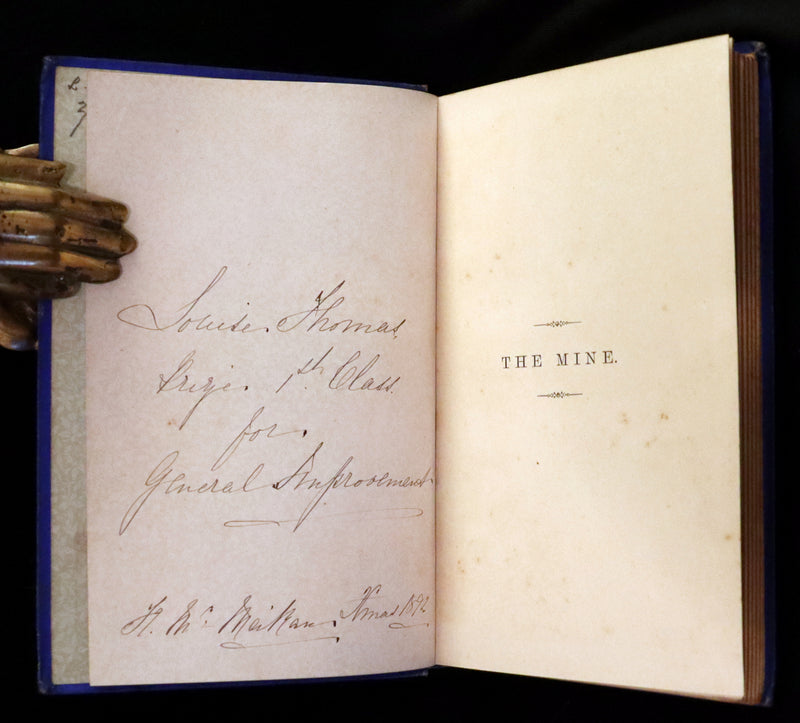 Louise Thomas
Prize 1st Class
for
General Improvement
Xmas
THE MINE.